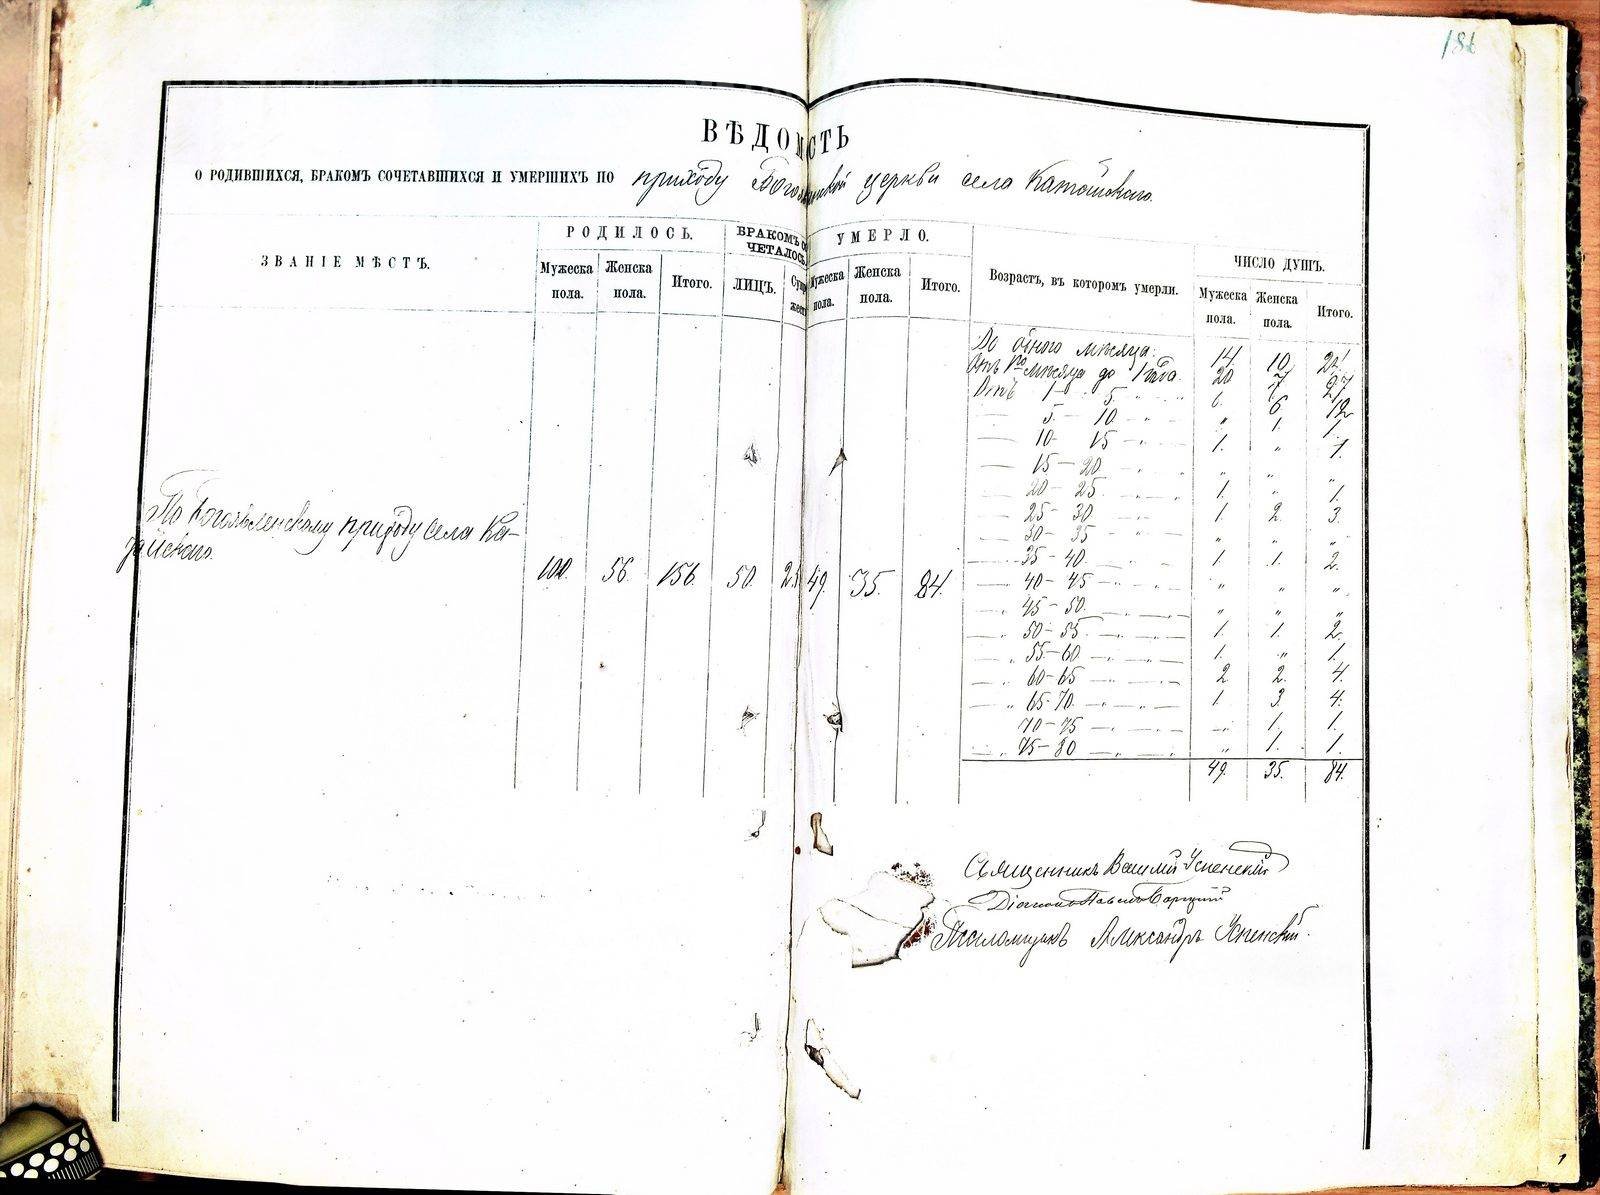 186
ВѢДОМОСТЬ
О РОДИВШИХСЯ, БРАКОМЪ СОЧЕТАВШИХСЯ И УМЕРШИХЪ ПО приходу Богоявленской церкви села
ЗВАНІЕ МѢСТЪ.
РОДИЛОСЬ.
Мужеска пола.
Женска пола.
Итого.
БРАКОМЪ СО
ЧЕТАЛОСЬ.
ЛИЦЪ.
УМЕРЛО.
Мужеска пола.
Женска пола.
Итого.
Возрастъ, въ которомъ умерли.
ЧИСЛО ДУШЪ.
Мужеска пола.
Женска пола.
Итого.
До одного мѣсяца. 14. 10. 24.
Отъ 1го мѣсяца до 1 года. 20. 7. 27
Отъ 1 – 5. „ „ 6. 6. 12
— 5. – 10. – „ – „ 1. 1.
— 10 – 15 – „ – 1. „ 1.
— 15 – 20 – „ – „ „ „ „
— 20 – 25. – „ – „ 1. „ 1.
— 25 – 30 – „ – 1. 2. 3.
— 30 – 35 – „ – „ „ „
— 35 – 40. – „ – 1. 1. 2.
— 40 – 45 – „ – „ „ „
— „ 45 – 50. – „ – „ „ „
— „ 50 – 55. – „ – 1. 1. 2.
— „ 55 – 60. – „ – 1. „ 1.
— „ 60 – 65 – „ – 2 2. 4.
— „ 65 – 70. – „ – 1. 3. 4.
70 – 75 – „ – „ 1. 1.
„ 75 – 80 – „ – „ 1. 1.
49. 35. 84.
По Богоявленскому приходу села Ка-
100. 56. 156. 50. 25 49. 35. 84.
Священникъ Василій Успенскій
Діаконъ Павелъ
Псаломщикъ Александръ Успенскій.